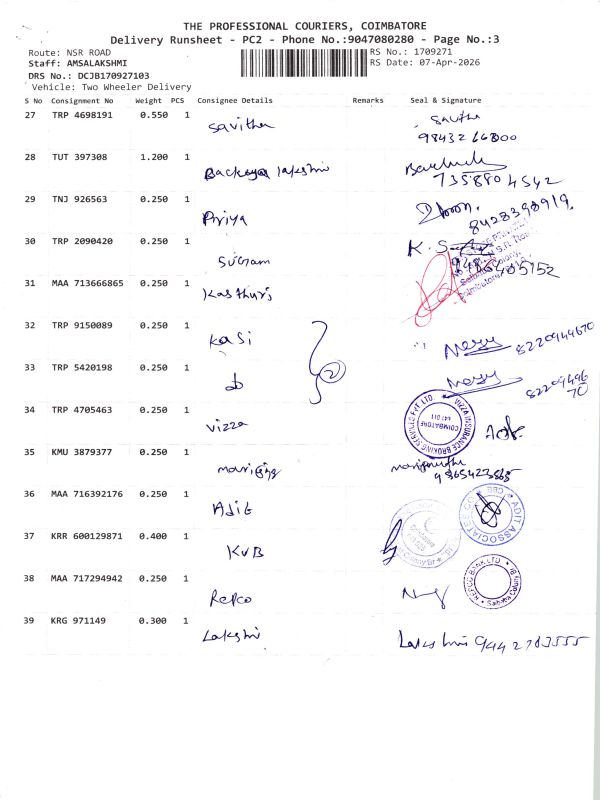 THE PROFESSIONAL COURIERS, COIMBATORE
Delivery Runsheet - PC2 - Phone No.:9047080280 - Page No.:3
Route: NSR ROAD RS No.: 1709271
Staff: AMSALAKSHMI RS Date: 07-Apr-2026
DRS No.: DCJB170927103
Vehicle: Two Wheeler Delivery
S No Consignment No Weight PCS Consignee Details Remarks Seal & Signature
27 TRP 4698191 0.550 1 Savitha
28 TUT 397308 1.200 1 lakshmi
7358804542
29 TNJ 926563 0.250 1 Priya
8428398919
30 TRP 2090420 0.250 1 K.S
31 MAA 713666865 0.250 1 Kasthuri
32 TRP 9150089 0.250 1 Kasi 8220944670
33 TRP 5420198 0.250 1 2
34 TRP 4705463 0.250 1 Vizza VIZZA INSURANCE BROKING SERVICES PVT. LTD. COIMBATORE 641 011
35 KMU 3879377 0.250 1
36 MAA 716392176 0.250 1 Adit ADIT ASSOCIATES
37 KRR 600129871 0.400 1 KVB
38 MAA 717294942 0.250 1 Repco REPCO BANK LTD
39 KRG 971149 0.300 1 Lakshmi Lakshmi 9442783555